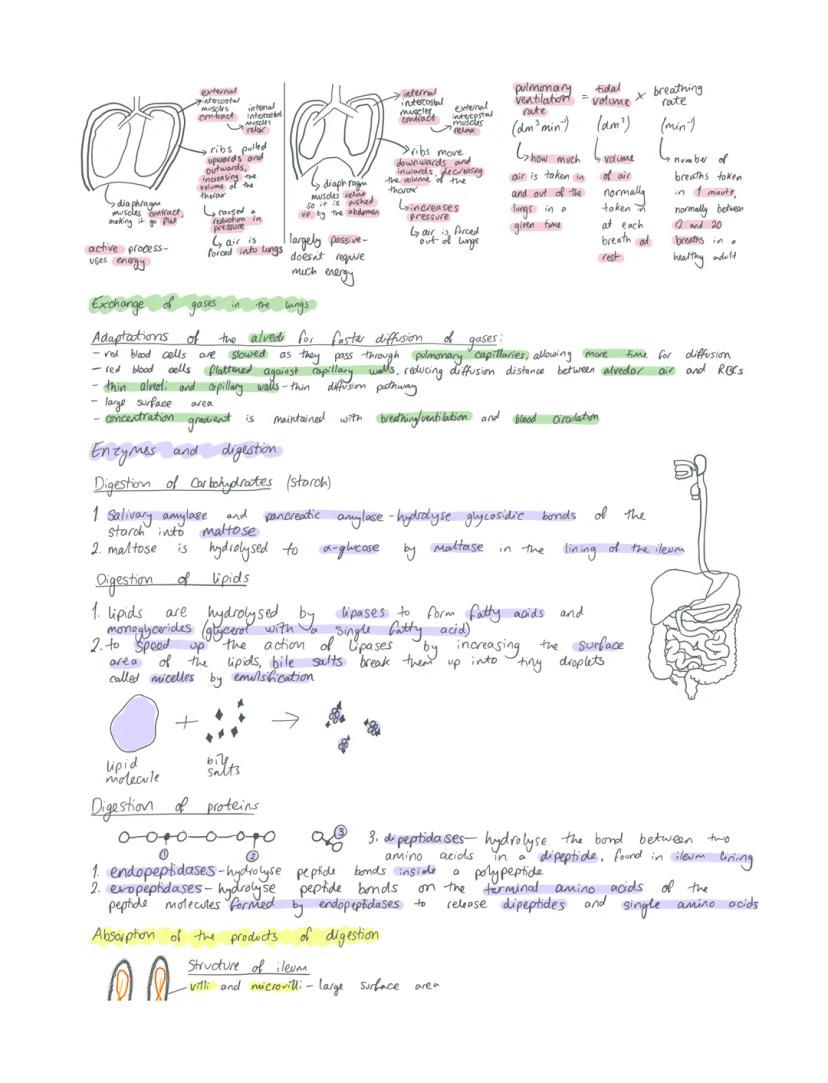 external
intercostal
muscles
contract
internal
intercostal
muscles
relax
ribs pulled
upwards and
outwards,
increasing the
volume of the
thorax
diaphragm
muscles contract,
making it go flat
caused a
reduction in
pressure
air is
forced into lungs
active process-
uses energy
internal
intercostal
muscles
contract
external
intercostal
muscles
relax
ribs move
downwards and
inwards, decreasing
the volume of the
thorax
diaphragm
muscles relax
so it is pushed
up by the abdomen
increases
pressure
air is forced
out of lungs
largely passive-
doesn't require
much energy
pulmonary
ventilation
rate
= tidal
volume
× breathing
rate
(dm³min⁻¹)
(dm³)
(min⁻¹)
how much
air is taken in
and out of the
lungs in a
given time
volume
of air
normally
taken in
at each
breath at
rest
number of
breaths taken
in 1 minute,
normally between
12 and 20
breaths in a
healthy adult
Exchange of gases in the lungs
Adaptations of the alveoli for faster diffusion of gases:
- red blood cells are slowed as they pass through pulmonary capillaries, allowing more time for diffusion
- red blood cells flattened against capillary walls, reducing diffusion distance between alveolar air and RBCs
- thin alveoli and capillary walls - thin diffusion pathway
- large surface area
- concentration gradient is maintained with breathing/ventilation and blood circulation
Enzymes and digestion
Digestion of Carbohydrates (starch)
1 Salivary amylase and pancreatic amylase - hydrolyse glycosidic bonds of the
starch into maltose
2. maltose is hydrolysed to α-glucose by maltase in the lining of the ileum
Digestion of lipids
1. lipids are hydrolysed by lipases to form fatty acids and
monoglycerides (glycerol with a single fatty acid)
2. to speed up the action of lipases by increasing the surface
area of the lipids, bile salts break them up into tiny droplets
called micelles by emulsification
+
lipid
molecule
bile
salts
Digestion of proteins
1
2
3
3. dipeptidases - hydrolyse the bond between two
amino acids in a dipeptide, found in ileum lining
1. endopeptidases - hydrolyse peptide bonds inside a polypeptide
2. exopeptidases - hydrolyse peptide bonds on the terminal amino acids of the
peptide molecules formed by endopeptidases to release dipeptides and single amino acids
Absorption of the products of digestion
Structure of ileum
villi and microvilli - large surface area